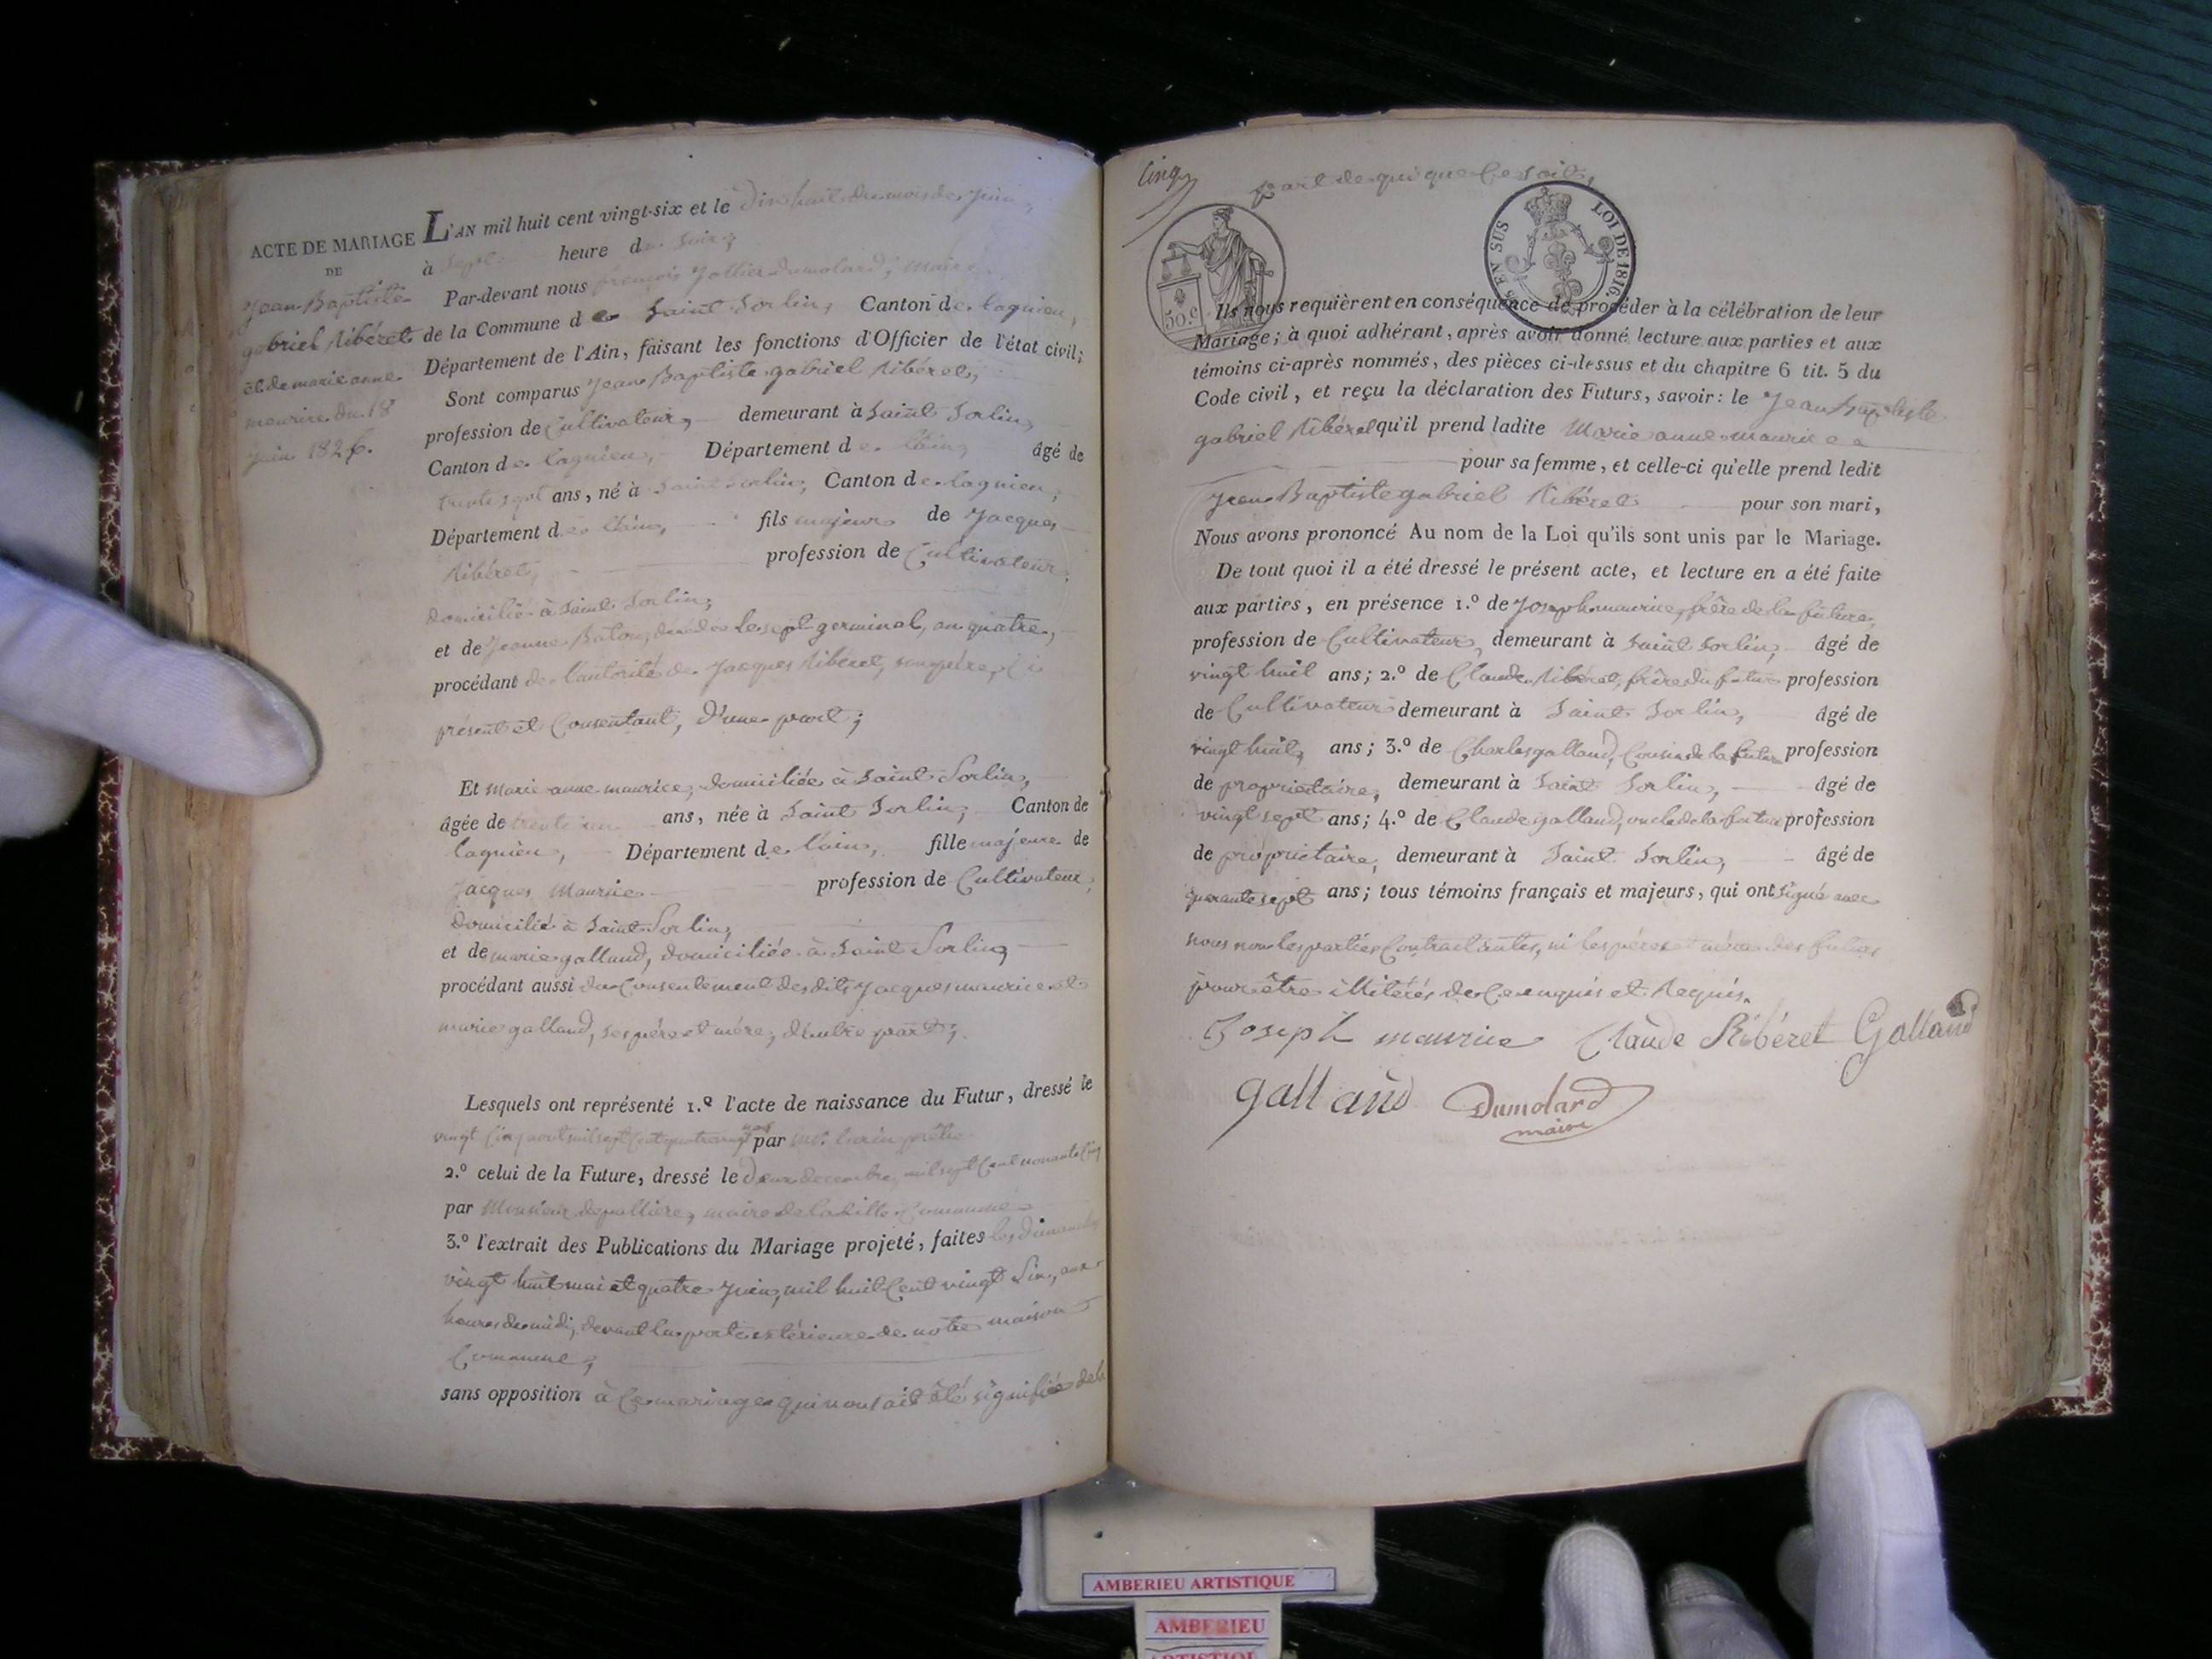 ACTE DE MARIAGE
DE
Jean Baptiste
gabriel Ribéret
et de marie anne
maurice du 18
juin 1826.
L'AN mil huit cent vingt-six et le dix huit du mois de Juin,
à sept heure du soir,
Par-devant nous françois Jollier Dumolard, maire
de la Commune de Saint Sorlin, Canton de lagnieu,
Département de l'Ain, faisant les fonctions d'Officier de l'état civil;
Sont comparus Jean Baptiste gabriel Ribéret,
profession de Cultivateur, demeurant à Saint Sorlin,
Canton de lagnieu, Département de l'ain, âgé de
trente sept ans, né à Saint Sorlin, Canton de lagnieu,
Département de l'ain, fils majeur de Jacques
Ribéret, profession de Cultivateur,
domicilié à Saint Sorlin,
et de Jeanne décédée le sept germinal, an quatre,
procédant de l'autorité de Jacques Ribéret, son père, ici
présent et Consentant, d'une part;
Et Marie anne maurice, domiciliée à Saint Sorlin,
âgée de trente ans, née à Saint Sorlin, Canton de
lagnieu, Département de l'ain, fille majeure de
Jacques Maurice profession de Cultivateur,
domicilié à Saint Sorlin,
et de marie galland, domiciliée à Saint Sorlin,
procédant aussi du Consentement desdits Jacques maurice et
marie galland, ses père et mère, d'autre part;
Lesquels ont représenté 1.º l'acte de naissance du Futur, dressé le
vingt cinq aout mil sept Cent quatre vingt par Mr. prêtre
2.º celui de la Future, dressé le deux decembre, mil sept Cent nonante Cinq
par Monsieur depallière, maire de ladite Commune
3.º l'extrait des Publications du Mariage projeté, faites les dimanches
vingt huit mai et quatre Juin, mil huit Cent vingt Six, aux
heures de midi, devant la porte extérieure de notre maison
Commune,
sans opposition à Ce mariage qui nous ait été signifiée de la
Cinq
part de qui que Ce soit,
50.C
EN SUS
LOI DE 1816.
Ils nous requièrent en conséquence de procéder à la célébration de leur
Mariage; à quoi adhérant, après avoir donné lecture aux parties et aux
témoins ci-après nommés, des pièces ci-dessus et du chapitre 6 tit. 5 du
Code civil, et reçu la déclaration des Futurs, savoir: le Jean Baptiste
gabriel Ribéret qu'il prend ladite Marie anne maurice
pour sa femme, et celle-ci qu'elle prend ledit
Jean Baptiste gabriel Ribéret pour son mari,
Nous avons prononcé Au nom de la Loi qu'ils sont unis par le Mariage.
De tout quoi il a été dressé le présent acte, et lecture en a été faite
aux parties, en présence 1.º de Joseph maurice, frère de la future,
profession de Cultivateur, demeurant à Saint Sorlin, âgé de
vingt huit ans; 2.º de Claude Ribéret, frère du futur profession
de Cultivateur demeurant à Saint Sorlin, âgé de
vingt huit, ans; 3.º de Charles galland, Cousin de la future profession
de propriétaire, demeurant à Saint Sorlin, âgé de
vingt sept ans; 4.º de Claude galland, oncle de la future profession
de propriétaire, demeurant à Saint Sorlin, âgé de
quarante sept ans; tous témoins français et majeurs, qui ont signé avec
nous non les parties Contractantes, ni les pères et mères des futurs
pour être illitérés de Ce enquis et Requis.
Joseph maurice Claude Ribéret Galland
galland Dumolard
maire
AMBERIEU ARTISTIQUE
AMBERIEU
ARTISTIQUE